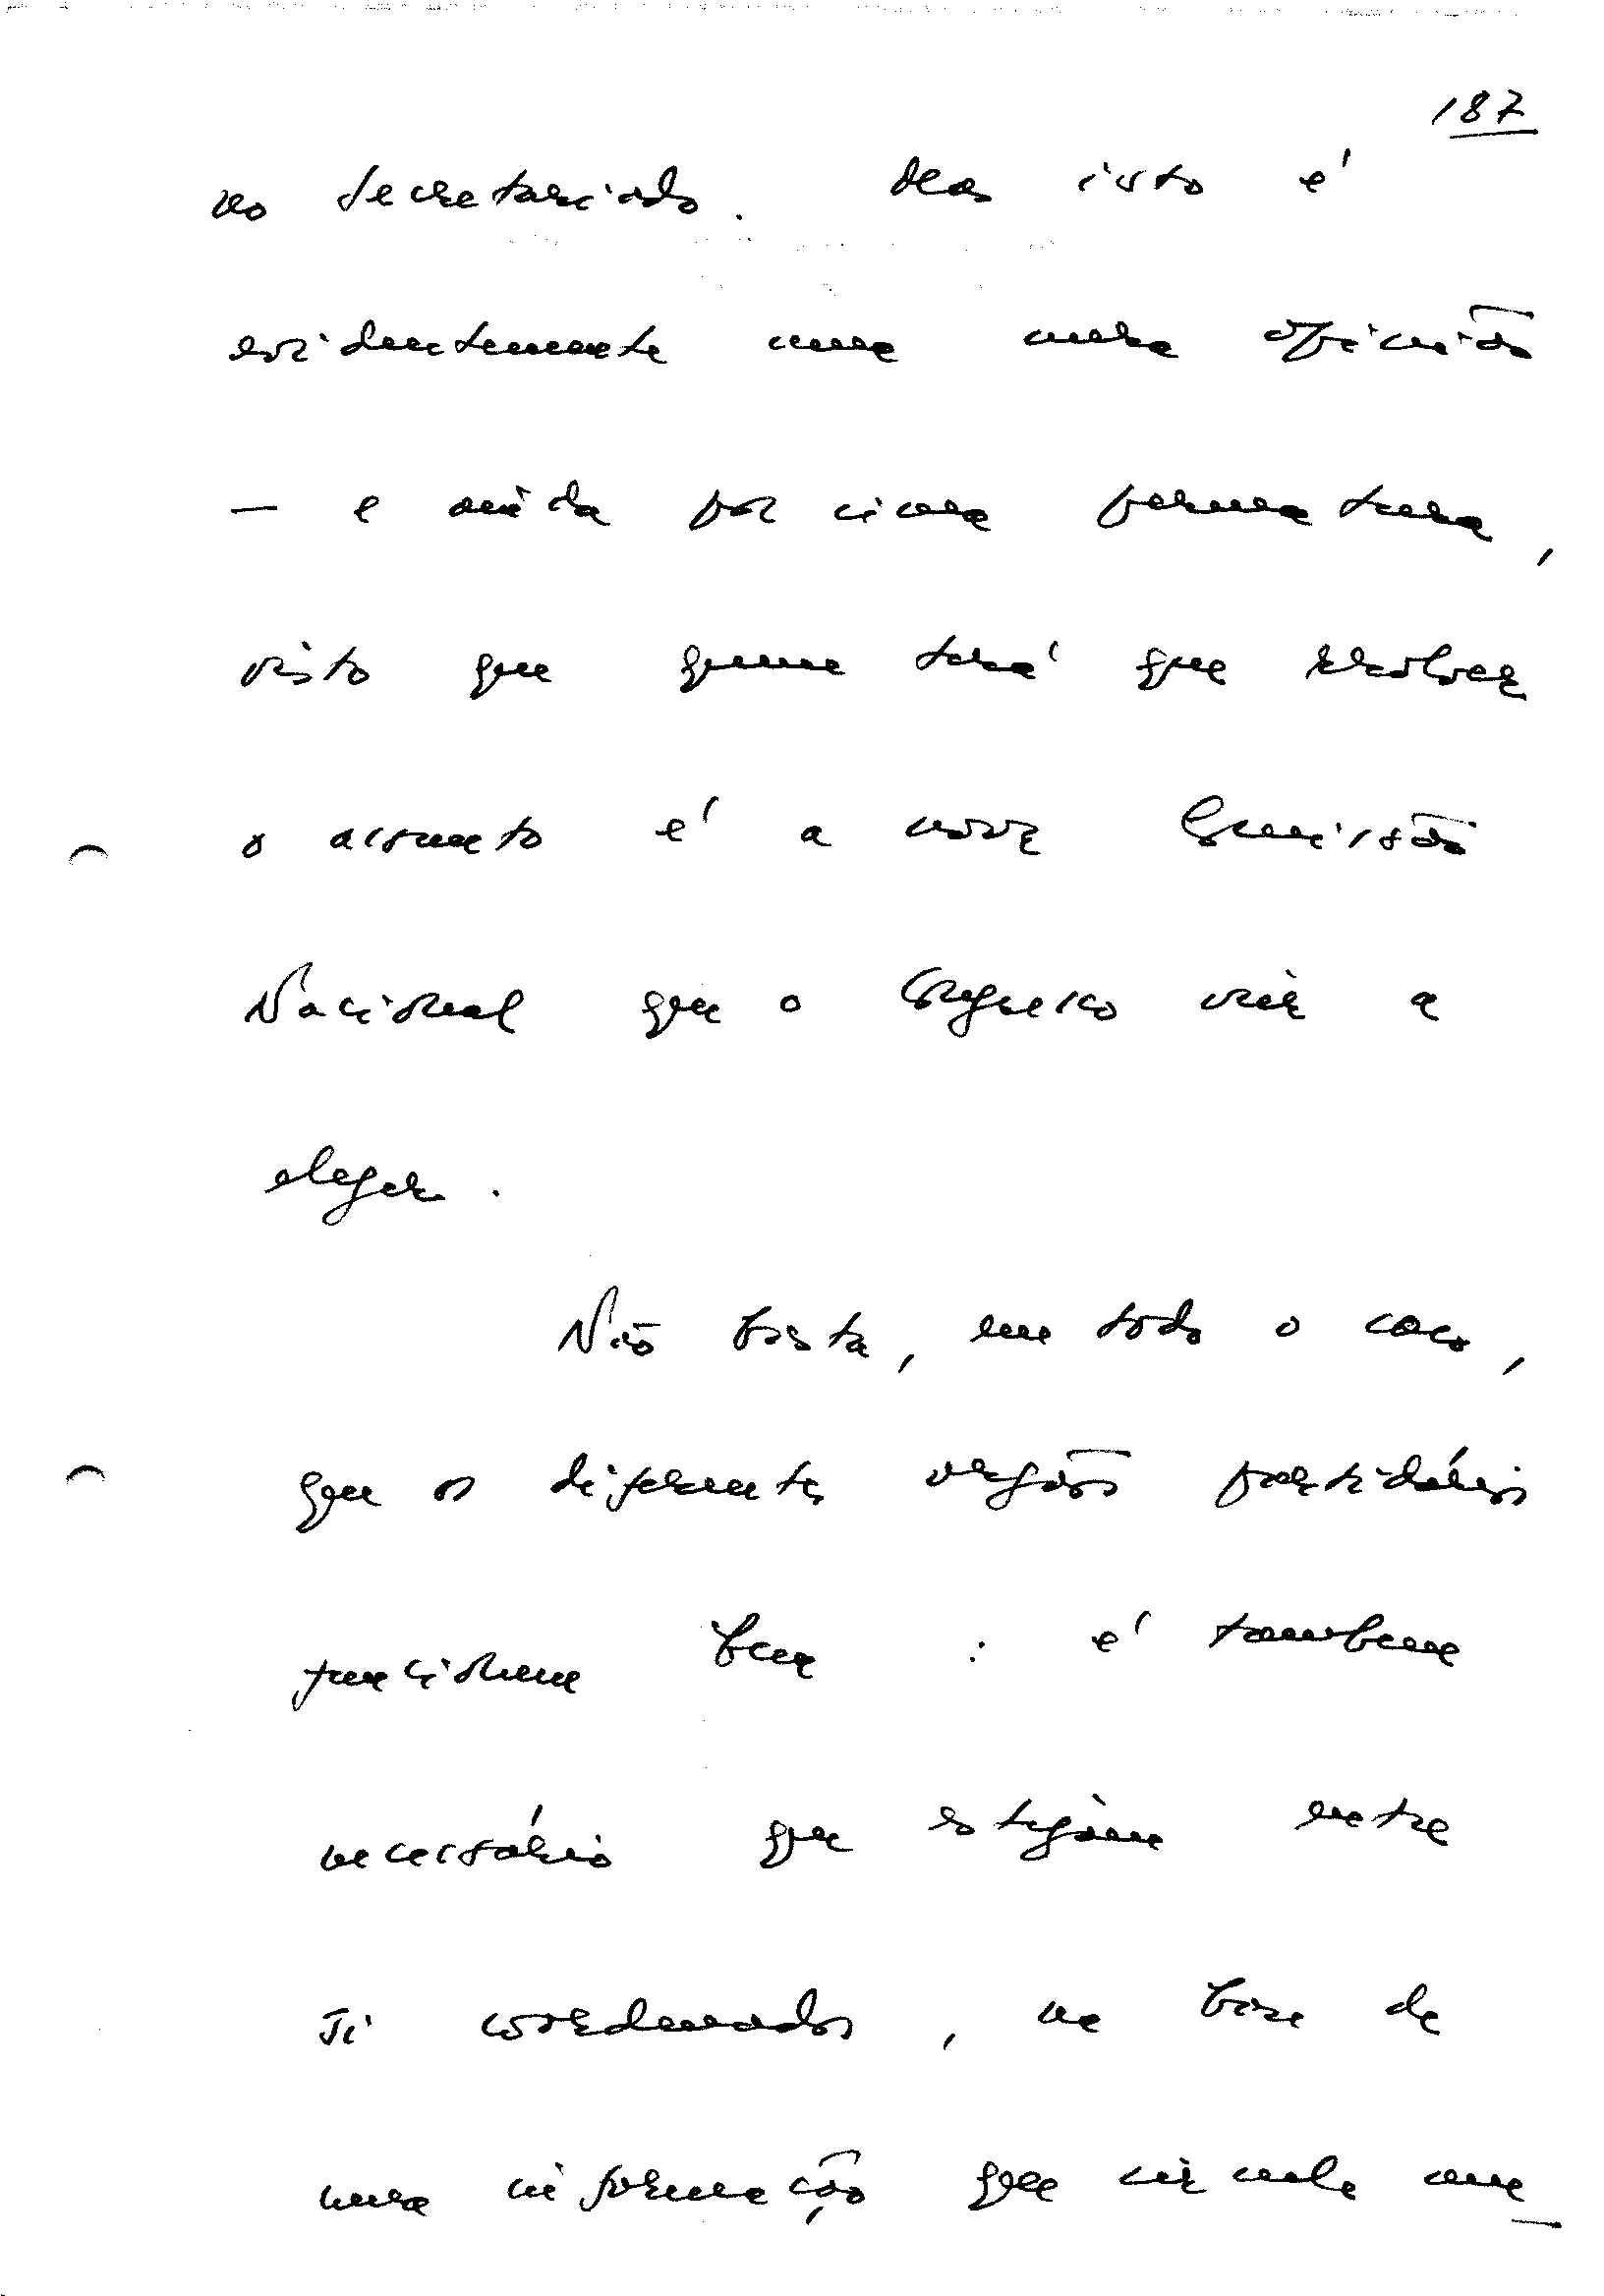 187
no Secretariado. Mas isto é
evidentemente uma mera opinião
— e ainda por cima prematura,
visto que quem terá que resolver
o assunto é a nova Comissão
Nacional que o Congresso vier a
eleger.
Não basta, em todo o caso,
que os diferentes orgãos partidários
funcionem bem : é tambem
necessário que estejam entre
si coordenados, na base de
uma informação que circule em